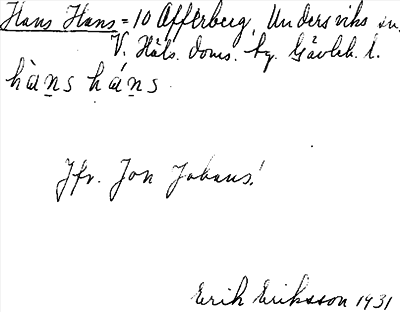 Hans Hans = 10 Afferberg, Undersviks sn.
V. Häls. doms. hg. Gävleb. l.
hàn̲s hán̲s
Jfr. Jon Johans!
Erik Eriksson 1931